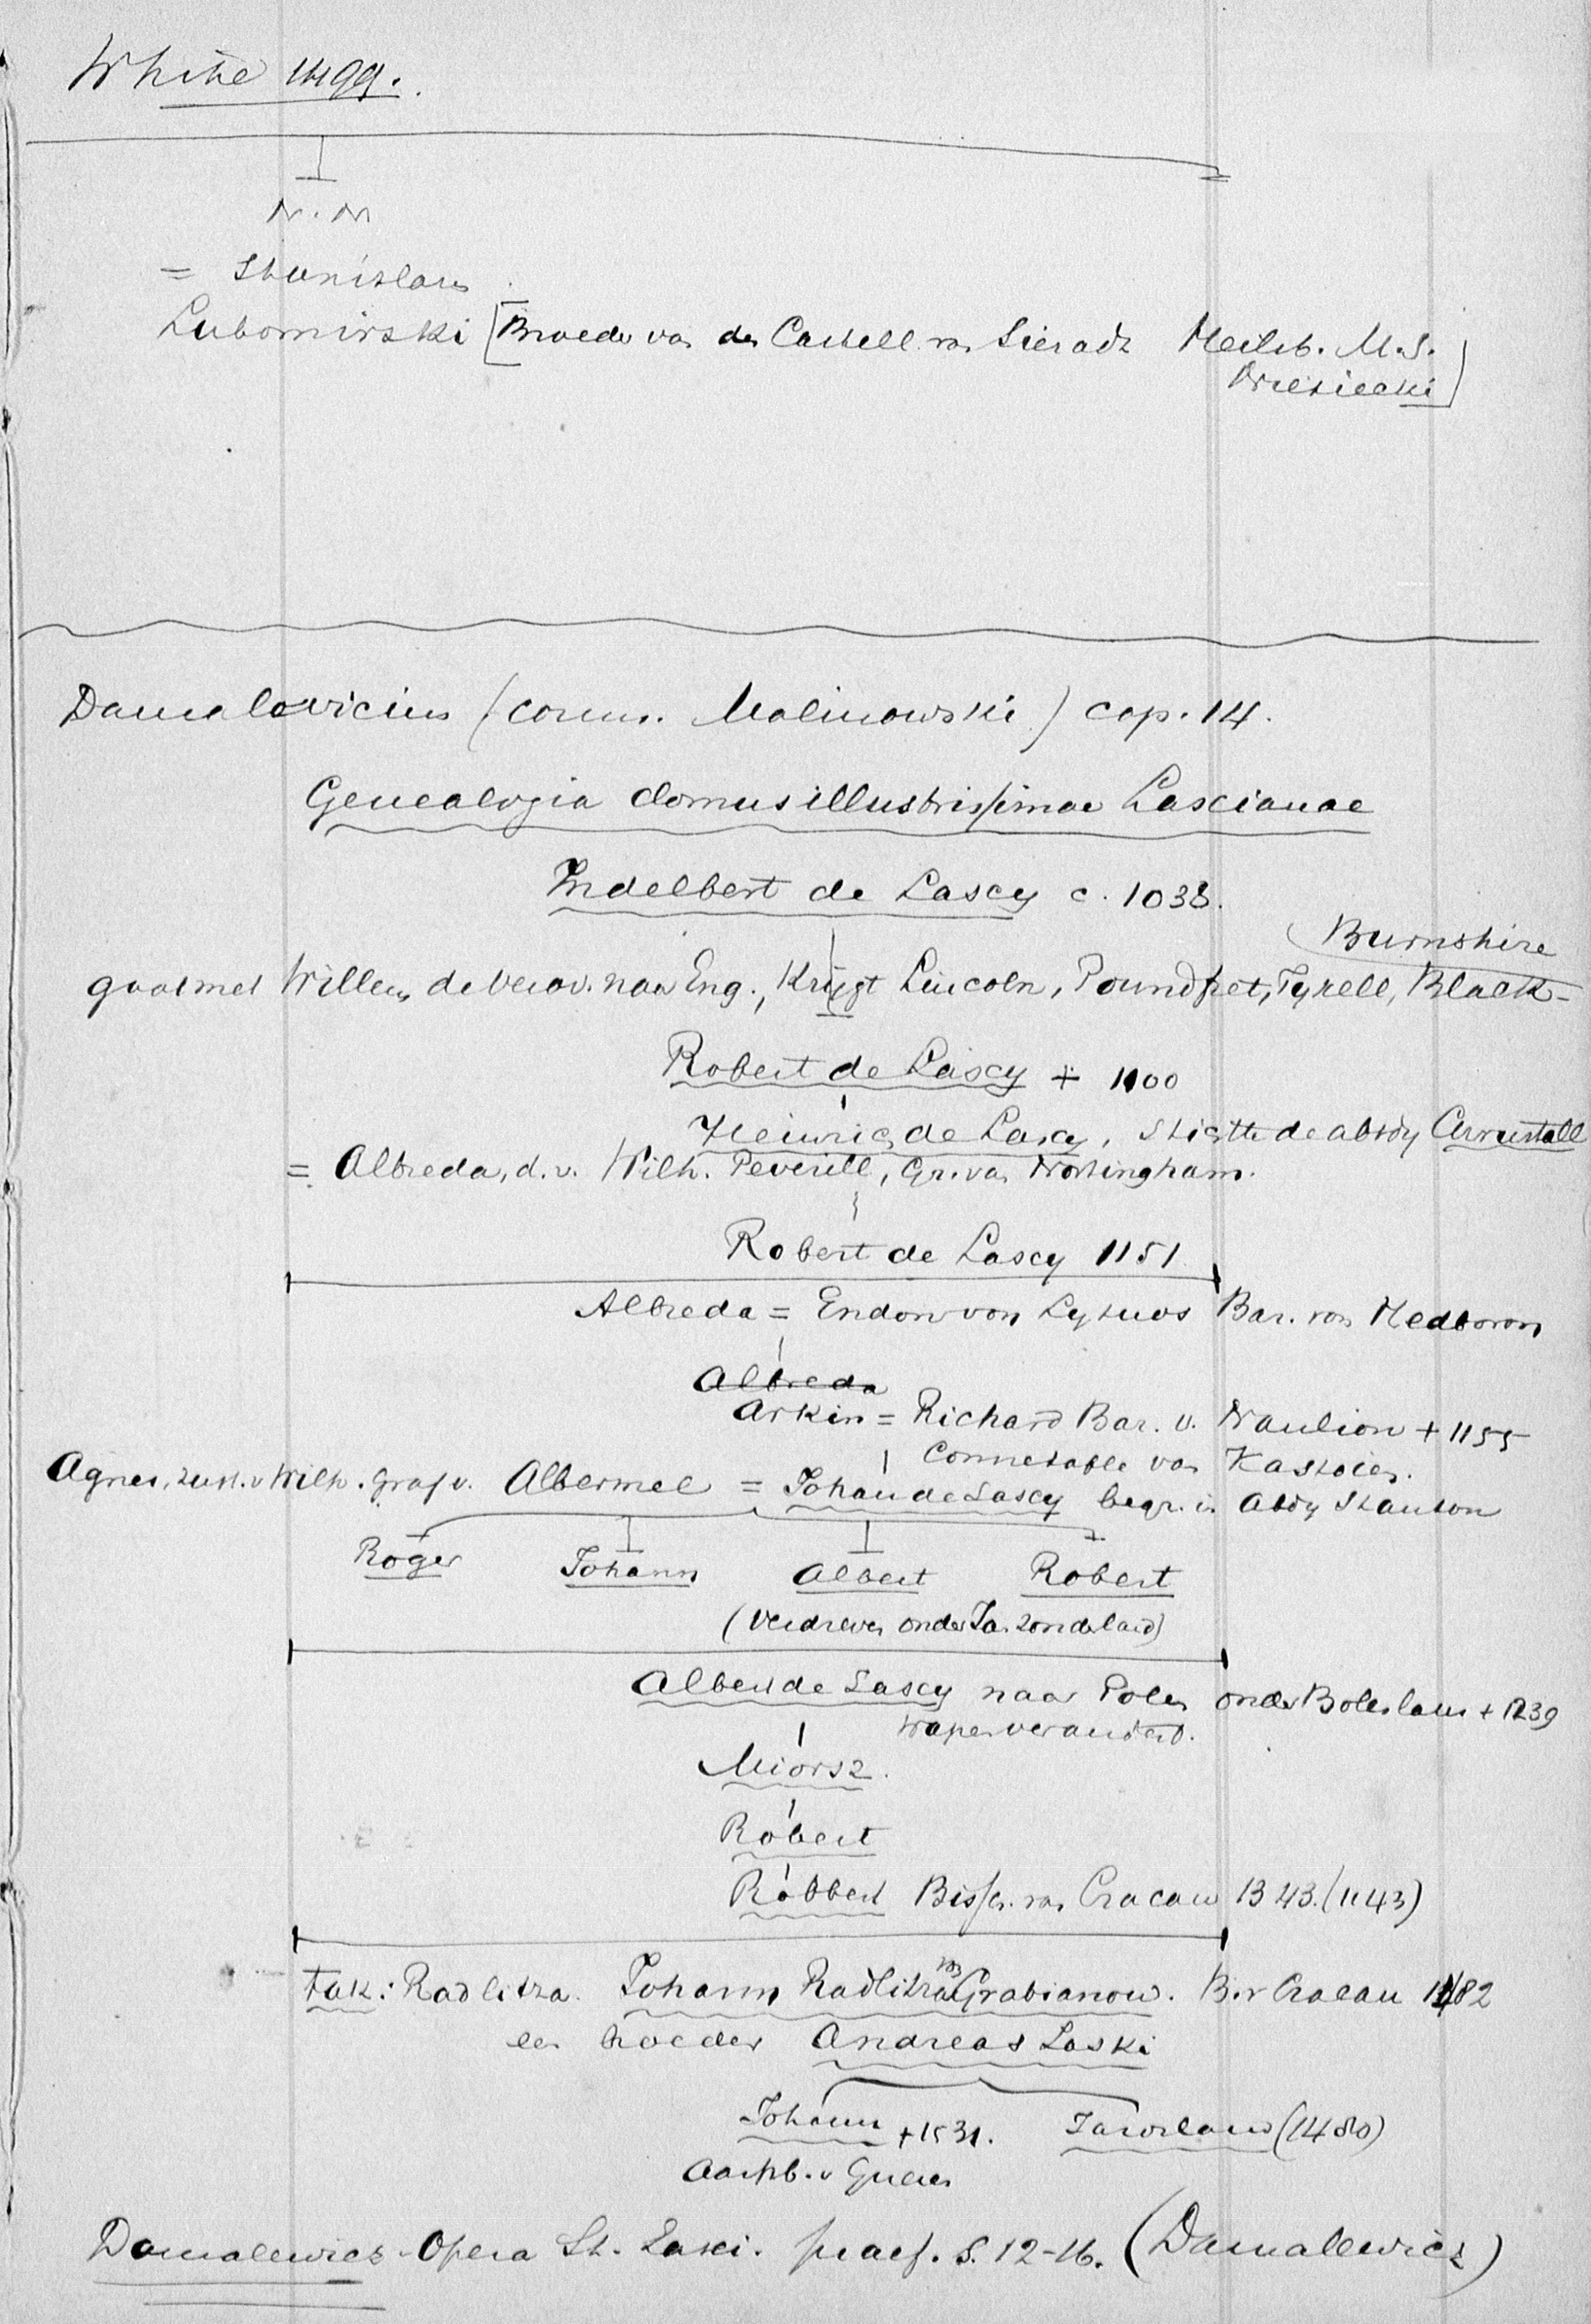 White 1499.
N. N
= Stanislaus
Lubomirski [Broeder van den Castell van Sieradz Heilsb. M.S.
Niesiecki]
Damalevicius (comm. Malinowski) cap. 14.
Genealogia domus illustrissimae Lascianae
Indelbert de Lascy c. 1038.
Burnshire
gaat met Willem de Verov. naar Eng., Krijgt Lincoln, Poundfret, Tyrell, Black-
Robert de Lascy + 1100
Heinric de Lascy, stichtte de abdij
= Albreda, d. v. Wilh. Peverill, Gr. van Nottingham.
Robert de Lascy 1151
Albreda = Endow von Bar. von
Albreda
Arkin = Richard Bar. v. + 1155
Connetable van
Agnes, zust. v Wilh. Graf v. Albermel = Johan de Lascy begr. in Abdy Stanton
Roger Johann Albert Robert
(verdreven onder Jan zonderland)
Albert de Lascy naar Polen onder Boleslaus + 1239
wapen verandert.
Miorsz.
Robert
Robbert Bissch. van Cracau 1343. (1143)
tak: Radlitza. Johann Radlitza Grabianow. B. v Cracau 1482
een broeder Andreas Laski
Johann + 1531. Jaroslaus (1480)
Aartsb. v Gnesen
Damalewicz - Opera St. Lasci. praef. S. 12-16. (Damalewicz)